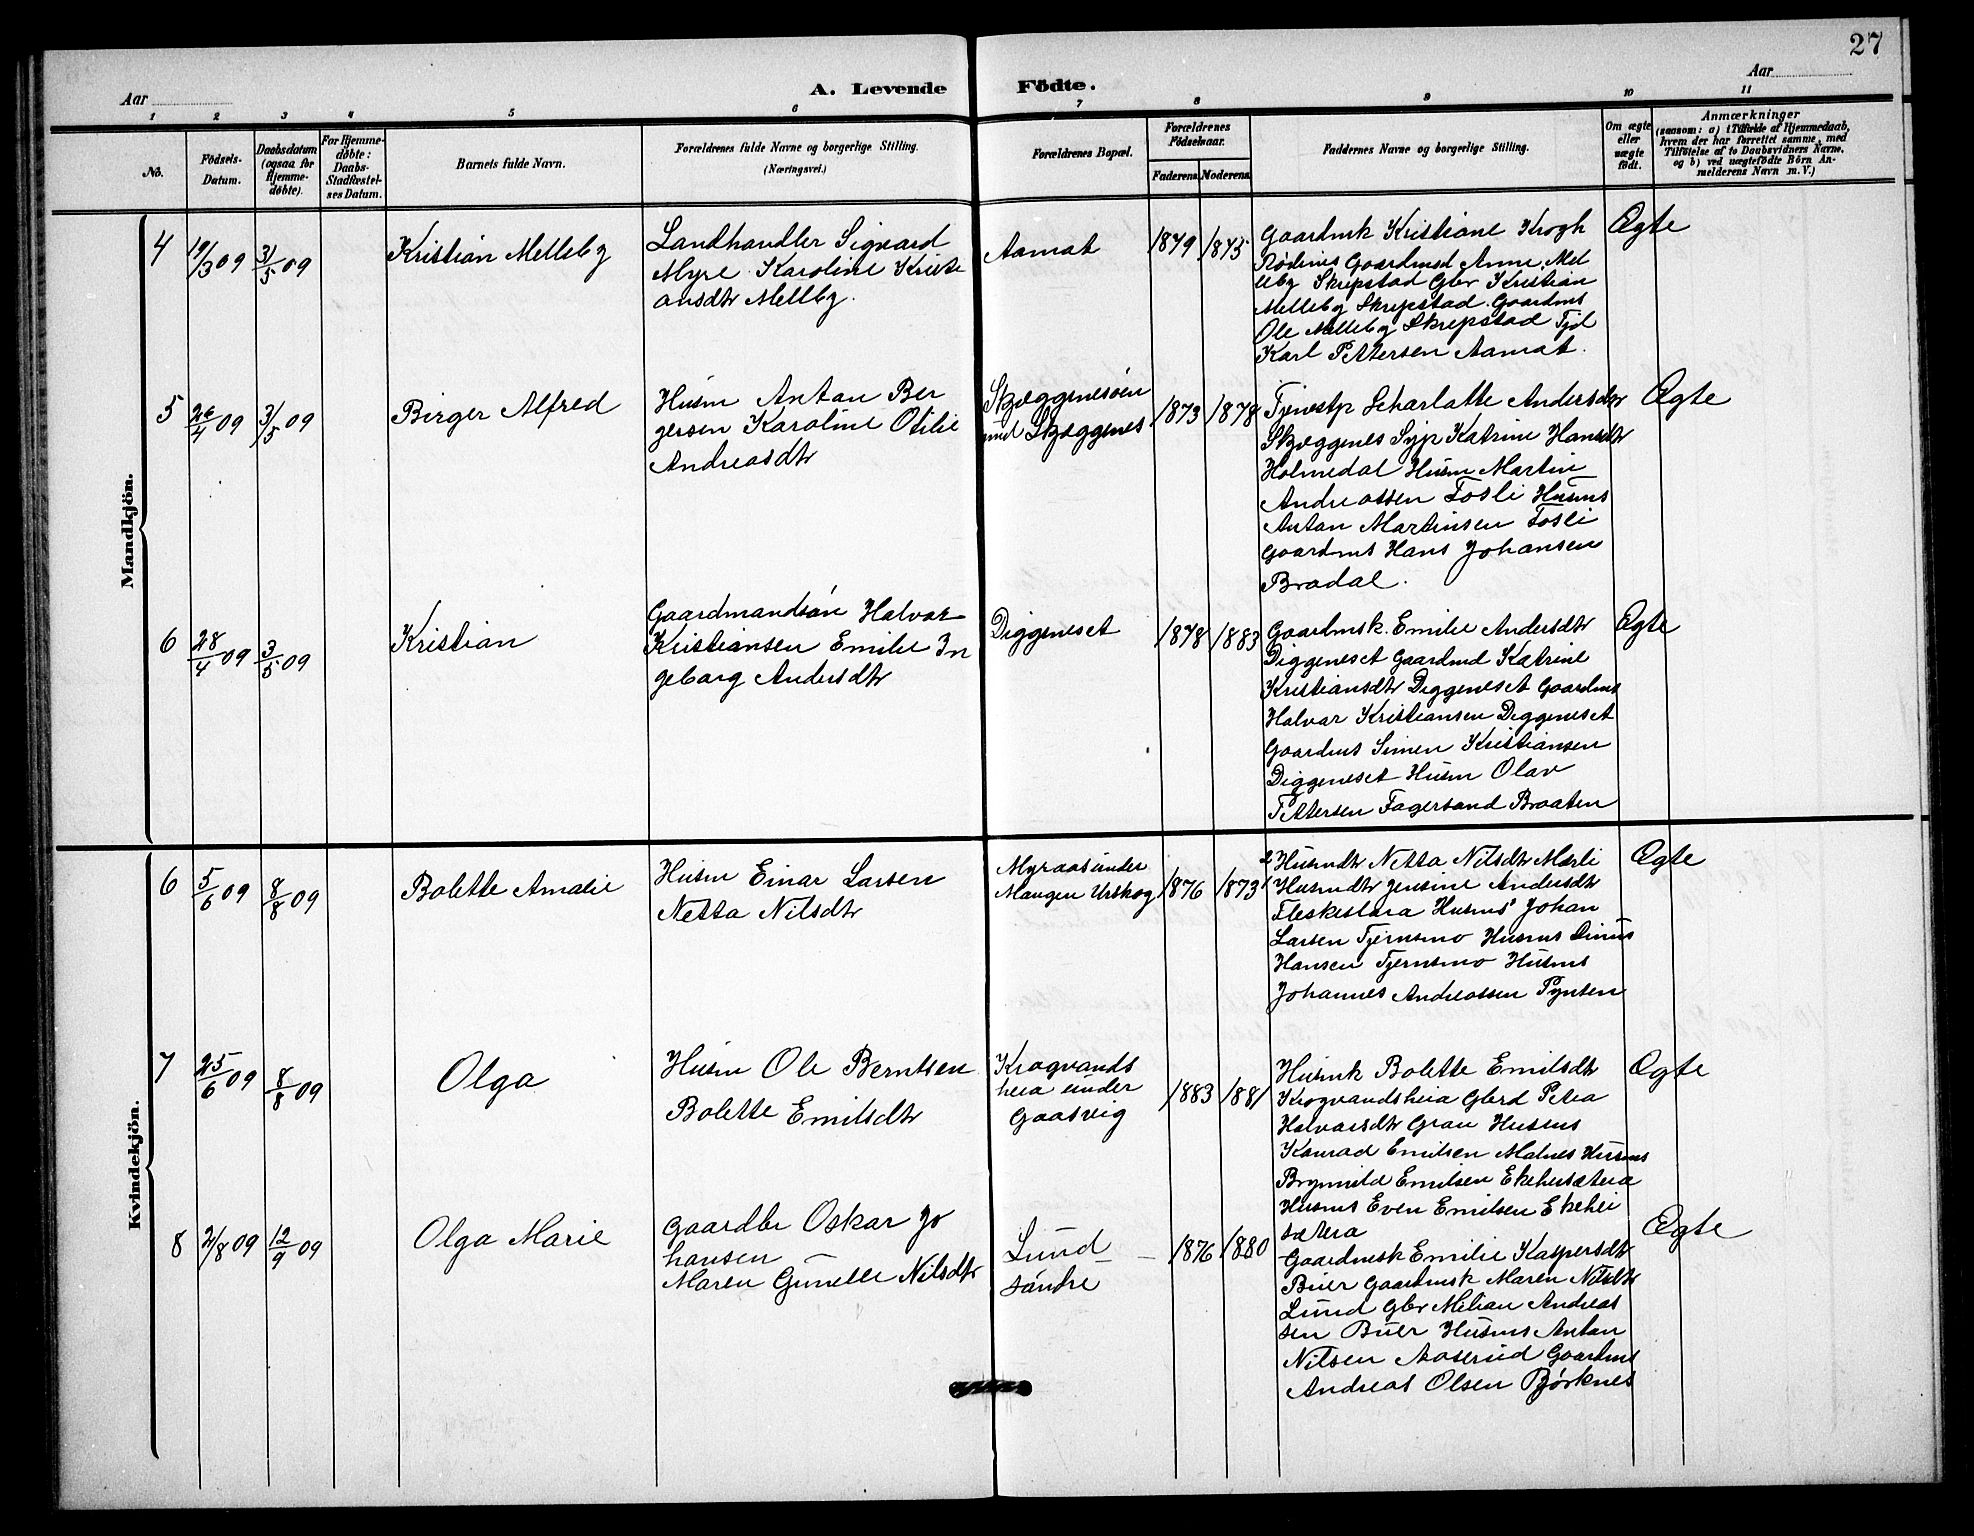 27
A. Levende Födte.
Aar
Aar
1 2 3 4 5 6 7 8 9 10 11
No.
Födsels-
Datum.
Daabsdatum
(ogsaa for
Hjemme-
døbte).
For Hjemme-
døbte:
Daabs-
Stadfæstel-
ses Datum.
Barnets fulde Navn.
Forældrenes fulde Navne og borgerlige Stilling.
(Næringsvei.)
Forældrenes Bopæl.
Forældrenes
Födselsaar.
Faderens. Moderens.
Faddernes Navne og borgerlige Stilling.
Om ægte
eller
uægte
født.
Anmærkninger
(saasom: a) i Tilfælde af Hjemmedaab,
hvem der har forrettet samme, med
Tilføielse af to Daabsvidners Navne,
og b) ved uægtefødte Börn An-
melderens Navn m. V.)
Mandkjön.
4
19/3 09
31/5 09
Kristian Melleby
Landhandler Sigvard
Myre Karoline Kristi
ansdtr Melleby.
Aamot
1879 1875
Gaardmk Kristiane Krogh
Rødenes Gaardmd Anne Mel
leby Skrepstad Gbr Kristian
Melleby Skrepstad. Gaardms
Ole Melleby Skrepstad Tjd
Karl Pettersen Aamot.
Ægte
5
26/4 09
31/5 09
Birger Alfred
Husm Anton Ber
gersen Karoline Otilie
Andreasdtr
Skjæggenesøen
und Skjæggenes
1873 1878
Tjenestp Scharlotte Andersdtr
Skjæggenes Syp Katrine Hansdtr
Holmedal Husm Martin
Andreassen Fosli Husms
Anton Martinsen Fosli
Gaardms Hans Johansen
Bradal.
Ægte
6
28/4 09
3/5 09
Kristian
Gaardmandsøn Halvor
Kristiansen Emilie In
geborg Andersdtr
Diggeneset
1878 1883
Gaardmsk. Emilie Andersdtr
Diggeneset Gaardmd Katrine
Kristiansdtr Diggeneset Gaardms
Halvar Kristiansen Diggeneset
Gaardms Simen Kristiansen
Diggeneset Husm Olav
Pettersen Fagersand Braaten
Ægte
Kvindekjön.
6
5/6 09
8/8 09
Bolette Amalie
Husm Einar Larsen
Netta Nilsdtr
Myraas under
Mangen Urskog
1876 1873
2 Husmdtr Netta Nilsdtr Mærli
1 Husmdtr Jensine Andersdtr
Fleskeslora Husms Johan
Larsen Tjernsmo Husms Dinus
Hansen Tjernsmo Husms
Johannes Andreassen Pynten
Ægte
7
25/6 09
8/8 09
Olga
Husm Ole Berntsen
Bolette Emilsdtr
Krogvands
heia under
Gaasvig
1883 1881
Husmk Bolette Emilsdtr
Krogvandsheia Gbrd Petra
Halvarsdtr Grav Husms
Konrad Emilsen Malnes Husms
Brynuld Emilsen Ekehusætera
Husms Even Emilsen Ekehei
sætera
Ægte
8
2/8 09
12/9 09
Olga Marie
Gaardbr Oskar Jo
hansen
Maren Gunelle Nilsdtr
Lund
søndre
1876 1880
Gaardmsk Emilie Kaspersdtr
Buer Gaardmsk Maren Nilsdtr
Lund Gbr Milian Andreas
sen Buer Husms Anton
Nilsen Aaserud Gaardms
Andreas Olsen Bjørknes
Ægte